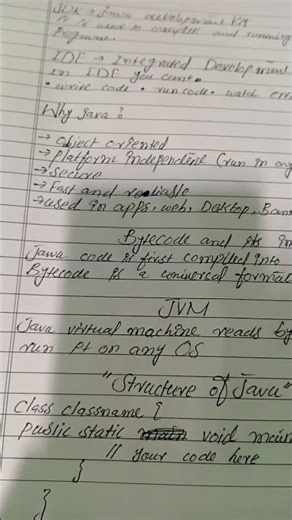 JDK → Java development Kit
It is used to compile and running
Programe.
IDE → Integrated Development
in IDE you can:-
• write code • run code • watch erro
Why Java?
→ object oriented
→ Platform independine (run in any
→ Secure
→ Fast and realiable
→ used in apps, web, Desktop, Ban
Bytecode and its im
Java code is first compiled into
Bytecode is a universal format
JVM
Java virtual machine reads by
run it on any OS
"Structure of Java"
class classname {
public static void main
// your code here
}
}